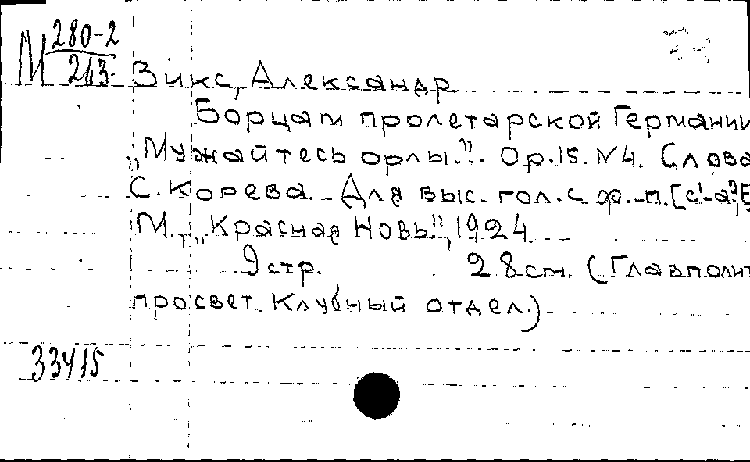 М 280-2
213. Зикс, Александр
Борцам пролетарской Германии
„Мужайтесь орлы.". Ор.15. №4. Слова
С. Корева. Для выс. гол. с ф.-п. [c'-a²
М., „Красная Новь", 1924
9 стр. 28 см. (Главполит
просвет. Клубный отдел.)
33415